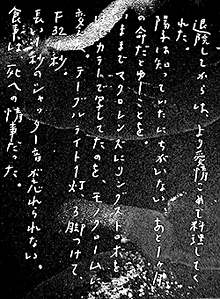 退院してからは、より愛情こめて料理してく
れた。
陽子は知っていたにちがいない。あと一ヶ月
の命だとゆーことを。
いままでマクロレンズにリングストロボを
カラーで写してたのを、モノクロームに
変え、テーブルライト1灯、3脚つけて、
F32 1秒。
長い1秒のシャッター音が忘れられない。
食事は、死への情事だった。